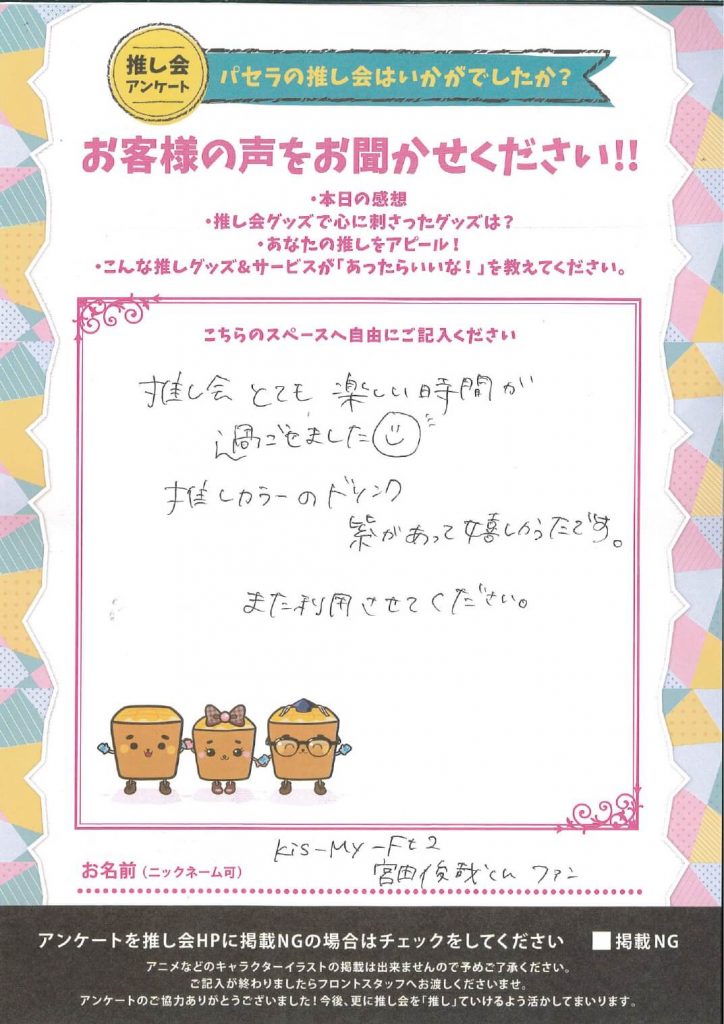 推し会
アンケート
パセラの推し会はいかがでしたか？
お客様の声をお聞かせください!!
・本日の感想
・推し会グッズで心に刺さったグッズは？
・あなたの推しをアピール！
・こんな推しグッズ&サービスが「あったらいいな！」を教えてください。
こちらのスペースへ自由にご記入ください
推し会 とても 楽しい時間が
過ごせました
推しカラーのドリンク
紫があって嬉しかったです。
また利用させてください。
Kis-My-Ft2
お名前（ニックネーム可）
宮田俊哉くん ファン
アンケートを推し会HPに掲載NGの場合はチェックをしてください ■掲載NG
アニメなどのキャラクターイラストの掲載は出来ませんので予めご了承ください。
ご記入が終わりましたらフロントスタッフへお渡しくださいませ。
アンケートのご協力ありがとうございました！今後、更に推し会を「推し」ていけるよう活かしてまいります。